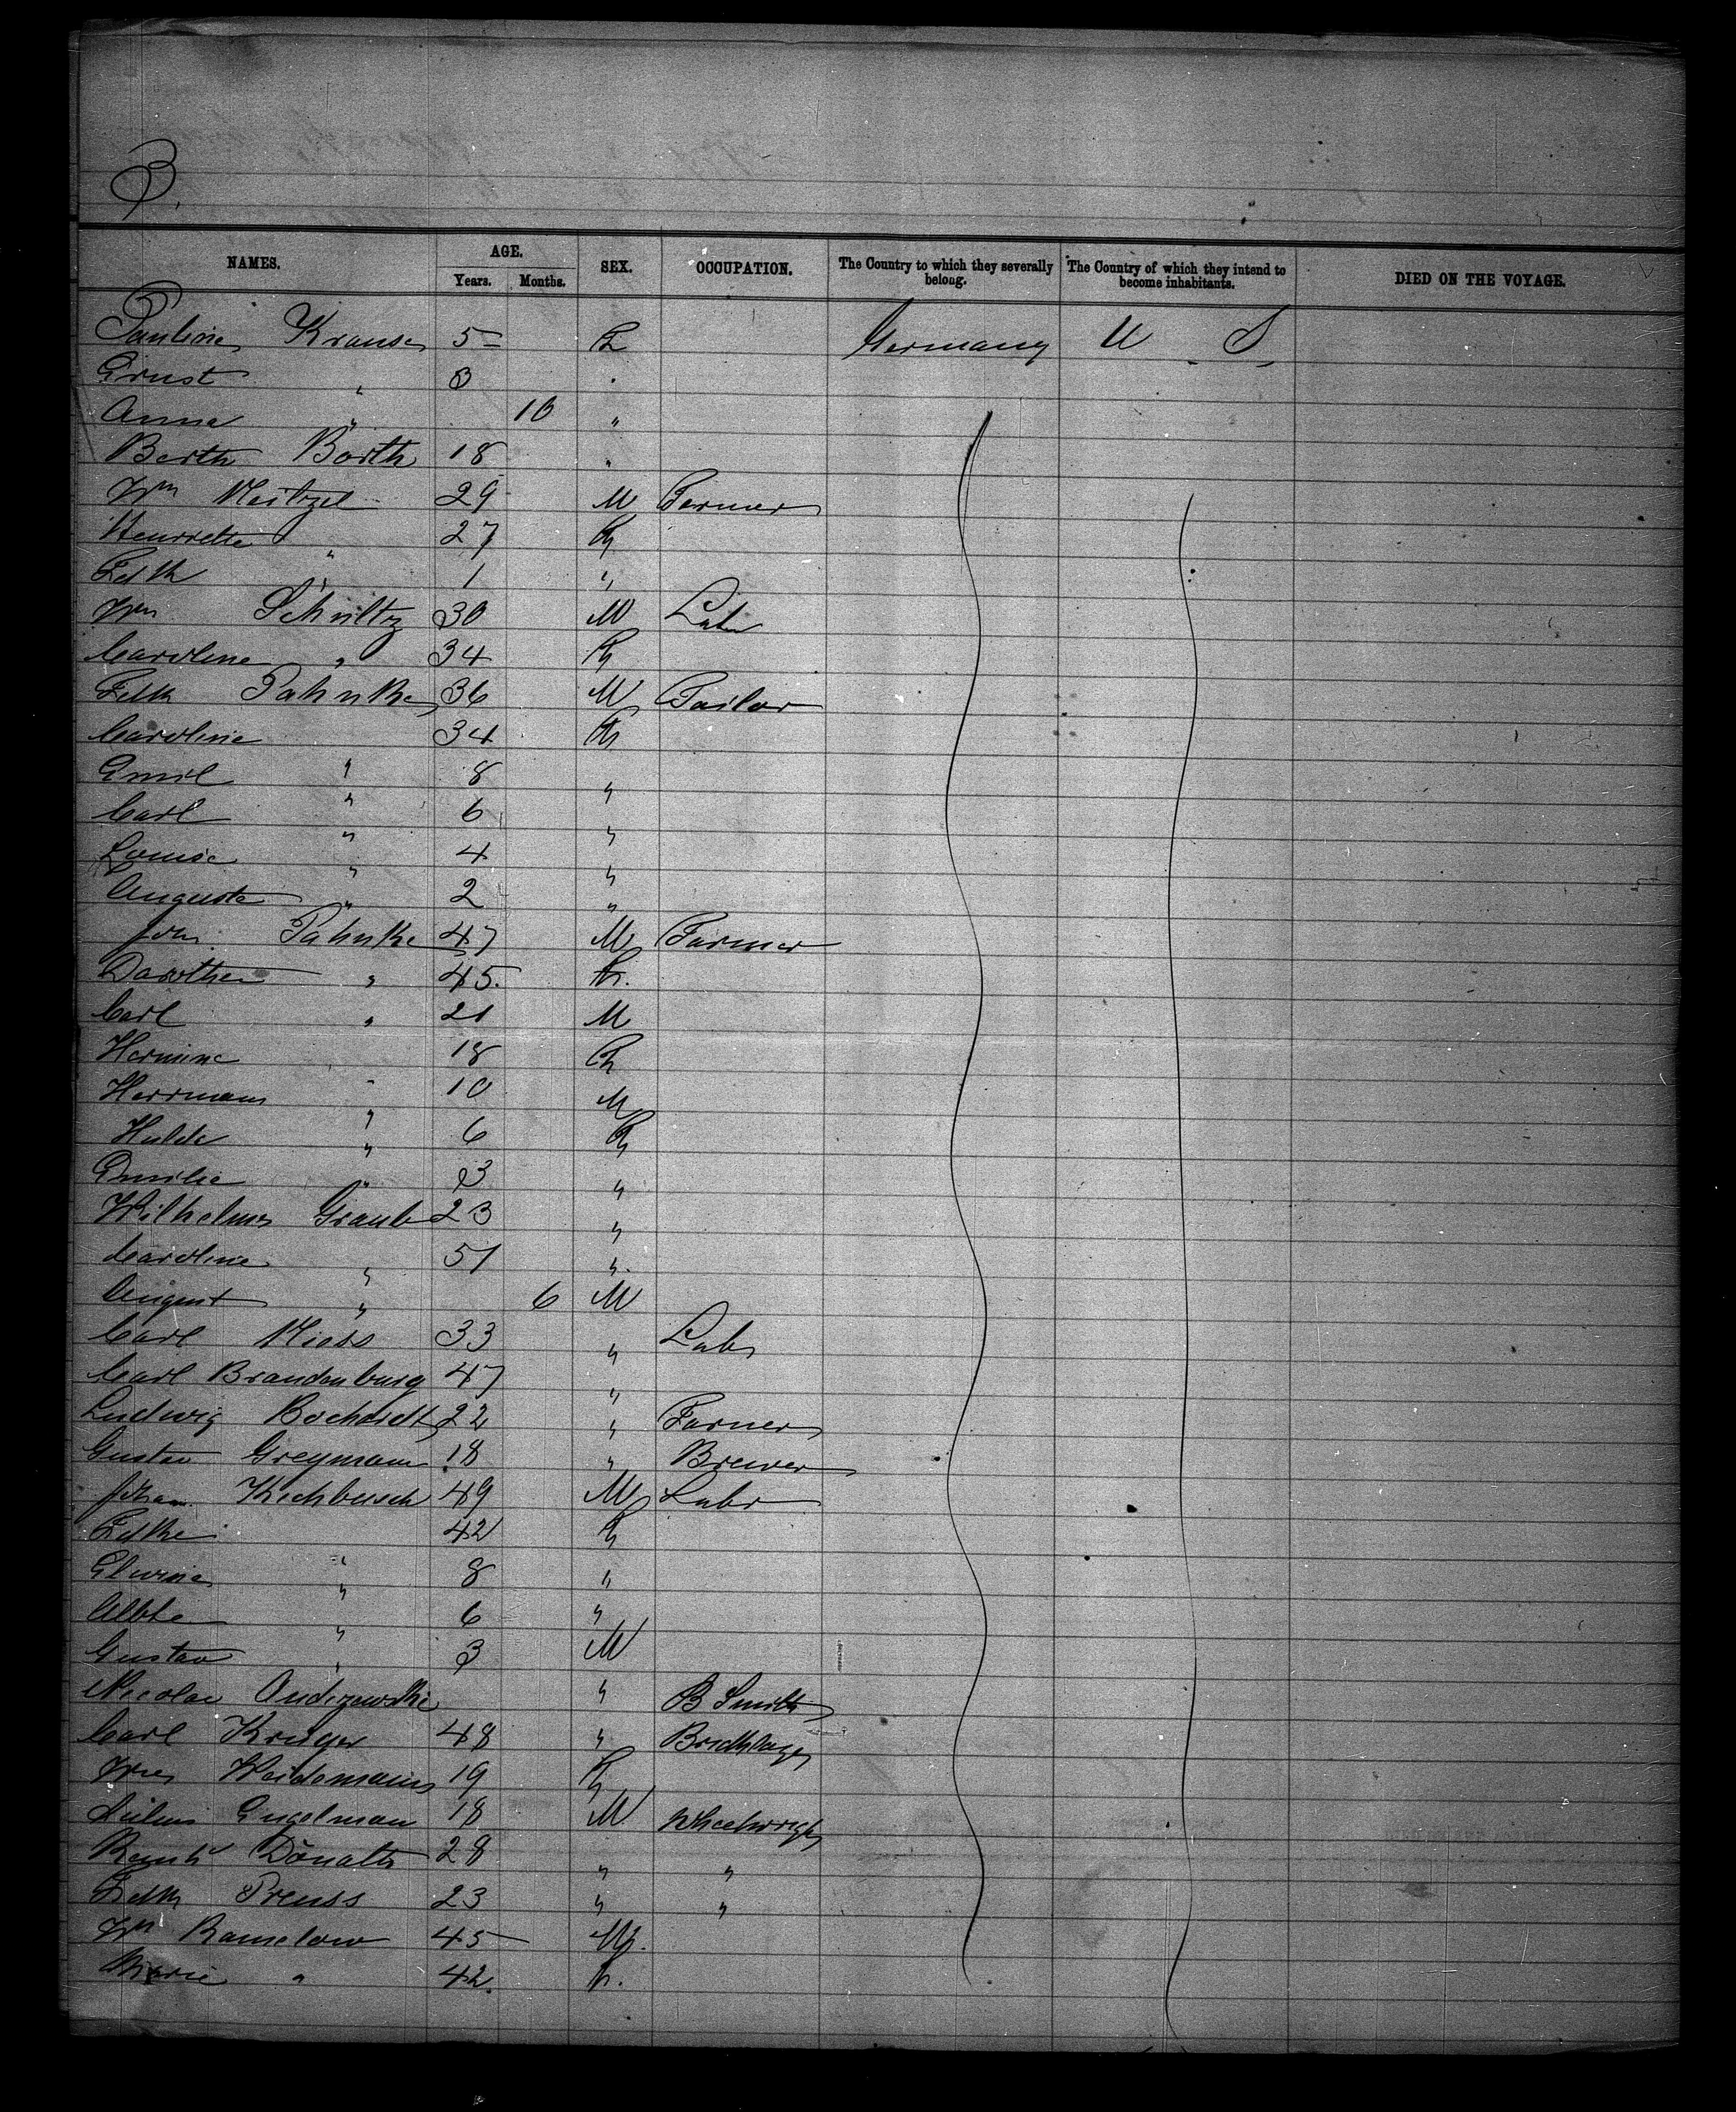 3.
NAMES. AGE. Years. Months. SEX. OCCUPATION. The Country to which they severally belong. The Country of which they intend to become inhabitants. DIED ON THE VOYAGE.
Pauline Krause 5 F Germany U S
Ernst " 3 "
Anna " 10 "
Berth Barth 18 "
Wm Meitzel 29 M Farmer
Henriette " 27 F
Fdk " 1 "
Wm Schultz 30 M Labr
Caroline " 34 F
Fdk Pahnke 36 M Tailor
Caroline " 34 F
Emil " 8 "
Carl " 6 "
Louise " 4 "
Auguste " 2 "
Joh Pahnke 47 M Farmer
Dorothea " 45 F.
Carl " 21 M
Hermine " 18 F
Herrmann " 10 M
Hulda " 6 F
Emilie " 3 "
Wilhelm Graub 23 "
Caroline " 51 "
August " 6 M
Carl 33 " Labr
Carl Brandenburg 47 "
Ludwig Bochardt 22 " Farmer
Gustav Greymann 18 " Brewer
Johan Kechbusch 49 M Labr
Fdke " 42 F
Elwine " 8 "
Albte " 6 "
Gustav " 3 M
Nicolai Andrzewski " B Smith
Carl Kruger 48 " Bricklayer
Heidemann 19 F
Julius Engelman 18 M Wheelwright
Donath 28 " "
Fdk Preuss 23 " "
Wm Ramelow 45 M.
Marie " 42 F.